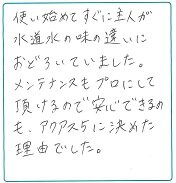 使い始めてすぐに主人が
水道水の味の違いに
おどろいていました。
メンテナンスもプロにして
頂けるので安心できるの
も、アクアス5に決めた
理由でした。